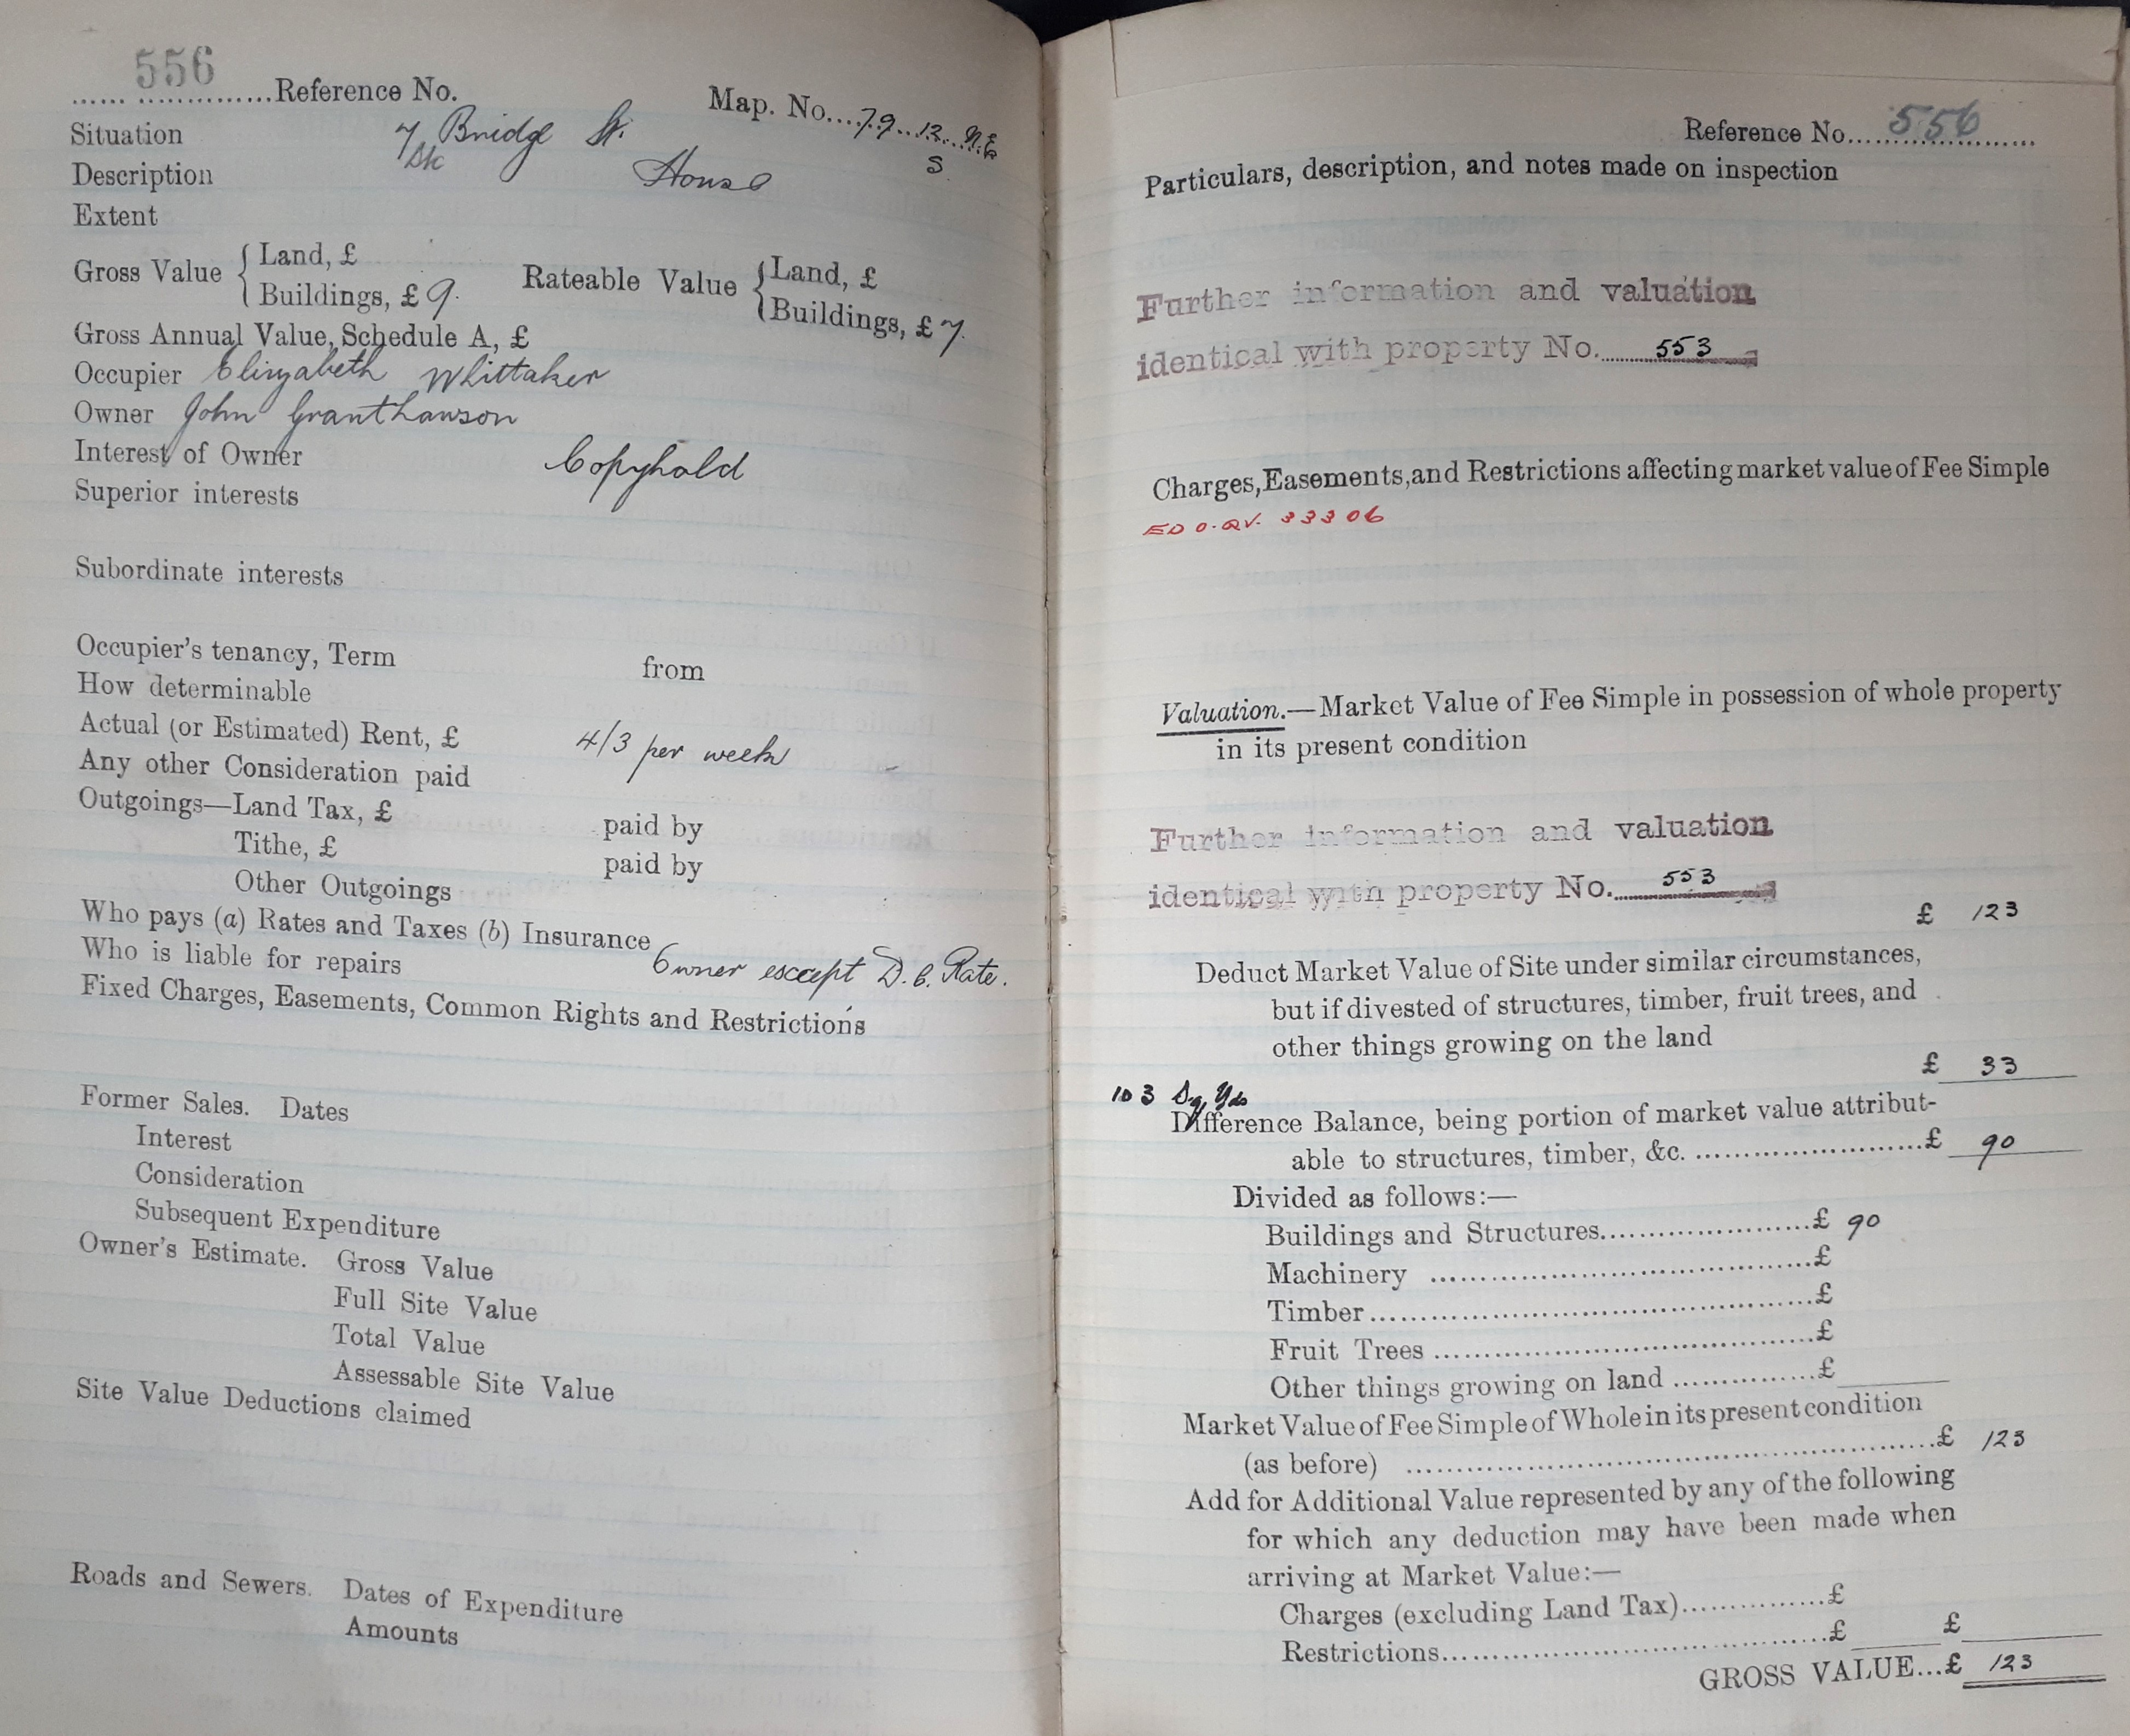 556
Reference No. Map. No. 79. 12. N.E
Situation 7 Bridge St. S
Description House
Extent
Gross Value { Land, £ Rateable Value { Land, £
Buildings, £ 9. Buildings, £ 7.
Gross Annual Value, Schedule A, £
Occupier Elizabeth Whittaker
Owner John
Interest of Owner Copyhold
Superior interests
Subordinate interests
Occupier's tenancy, Term from
How determinable
Actual (or Estimated) Rent, £ 4/3 per week
Any other Consideration paid
Outgoings—Land Tax, £ paid by
Tithe, £ paid by
Other Outgoings
Who pays (a) Rates and Taxes (b) Insurance
Who is liable for repairs Owner except D.C. Rate.
Fixed Charges, Easements, Common Rights and Restrictions
Former Sales. Dates
Interest
Consideration
Subsequent Expenditure
Owner's Estimate. Gross Value
Full Site Value
Total Value
Assessable Site Value
Site Value Deductions claimed
Roads and Sewers. Dates of Expenditure
Amounts
Reference No. 556
Particulars, description, and notes made on inspection
Further information and valuation
identical with property No. 553
Charges, Easements, and Restrictions affecting market value of Fee Simple
33306
Valuation.—Market Value of Fee Simple in possession of whole property
in its present condition
Further information and valuation
identical with property No. 553
£ 123
Deduct Market Value of Site under similar circumstances,
but if divested of structures, timber, fruit trees, and
other things growing on the land
£ 33
103 Sq. Yds
Difference Balance, being portion of market value attribut-
able to structures, timber, &c. £ 90
Divided as follows:—
Buildings and Structures £ 90
Machinery £
Timber £
Fruit Trees £
Other things growing on land £
Market Value of Fee Simple of Whole in its present condition
(as before) £ 123
Add for Additional Value represented by any of the following
for which any deduction may have been made when
arriving at Market Value:—
Charges (excluding Land Tax) £
Restrictions £ £
GROSS VALUE...£ 123